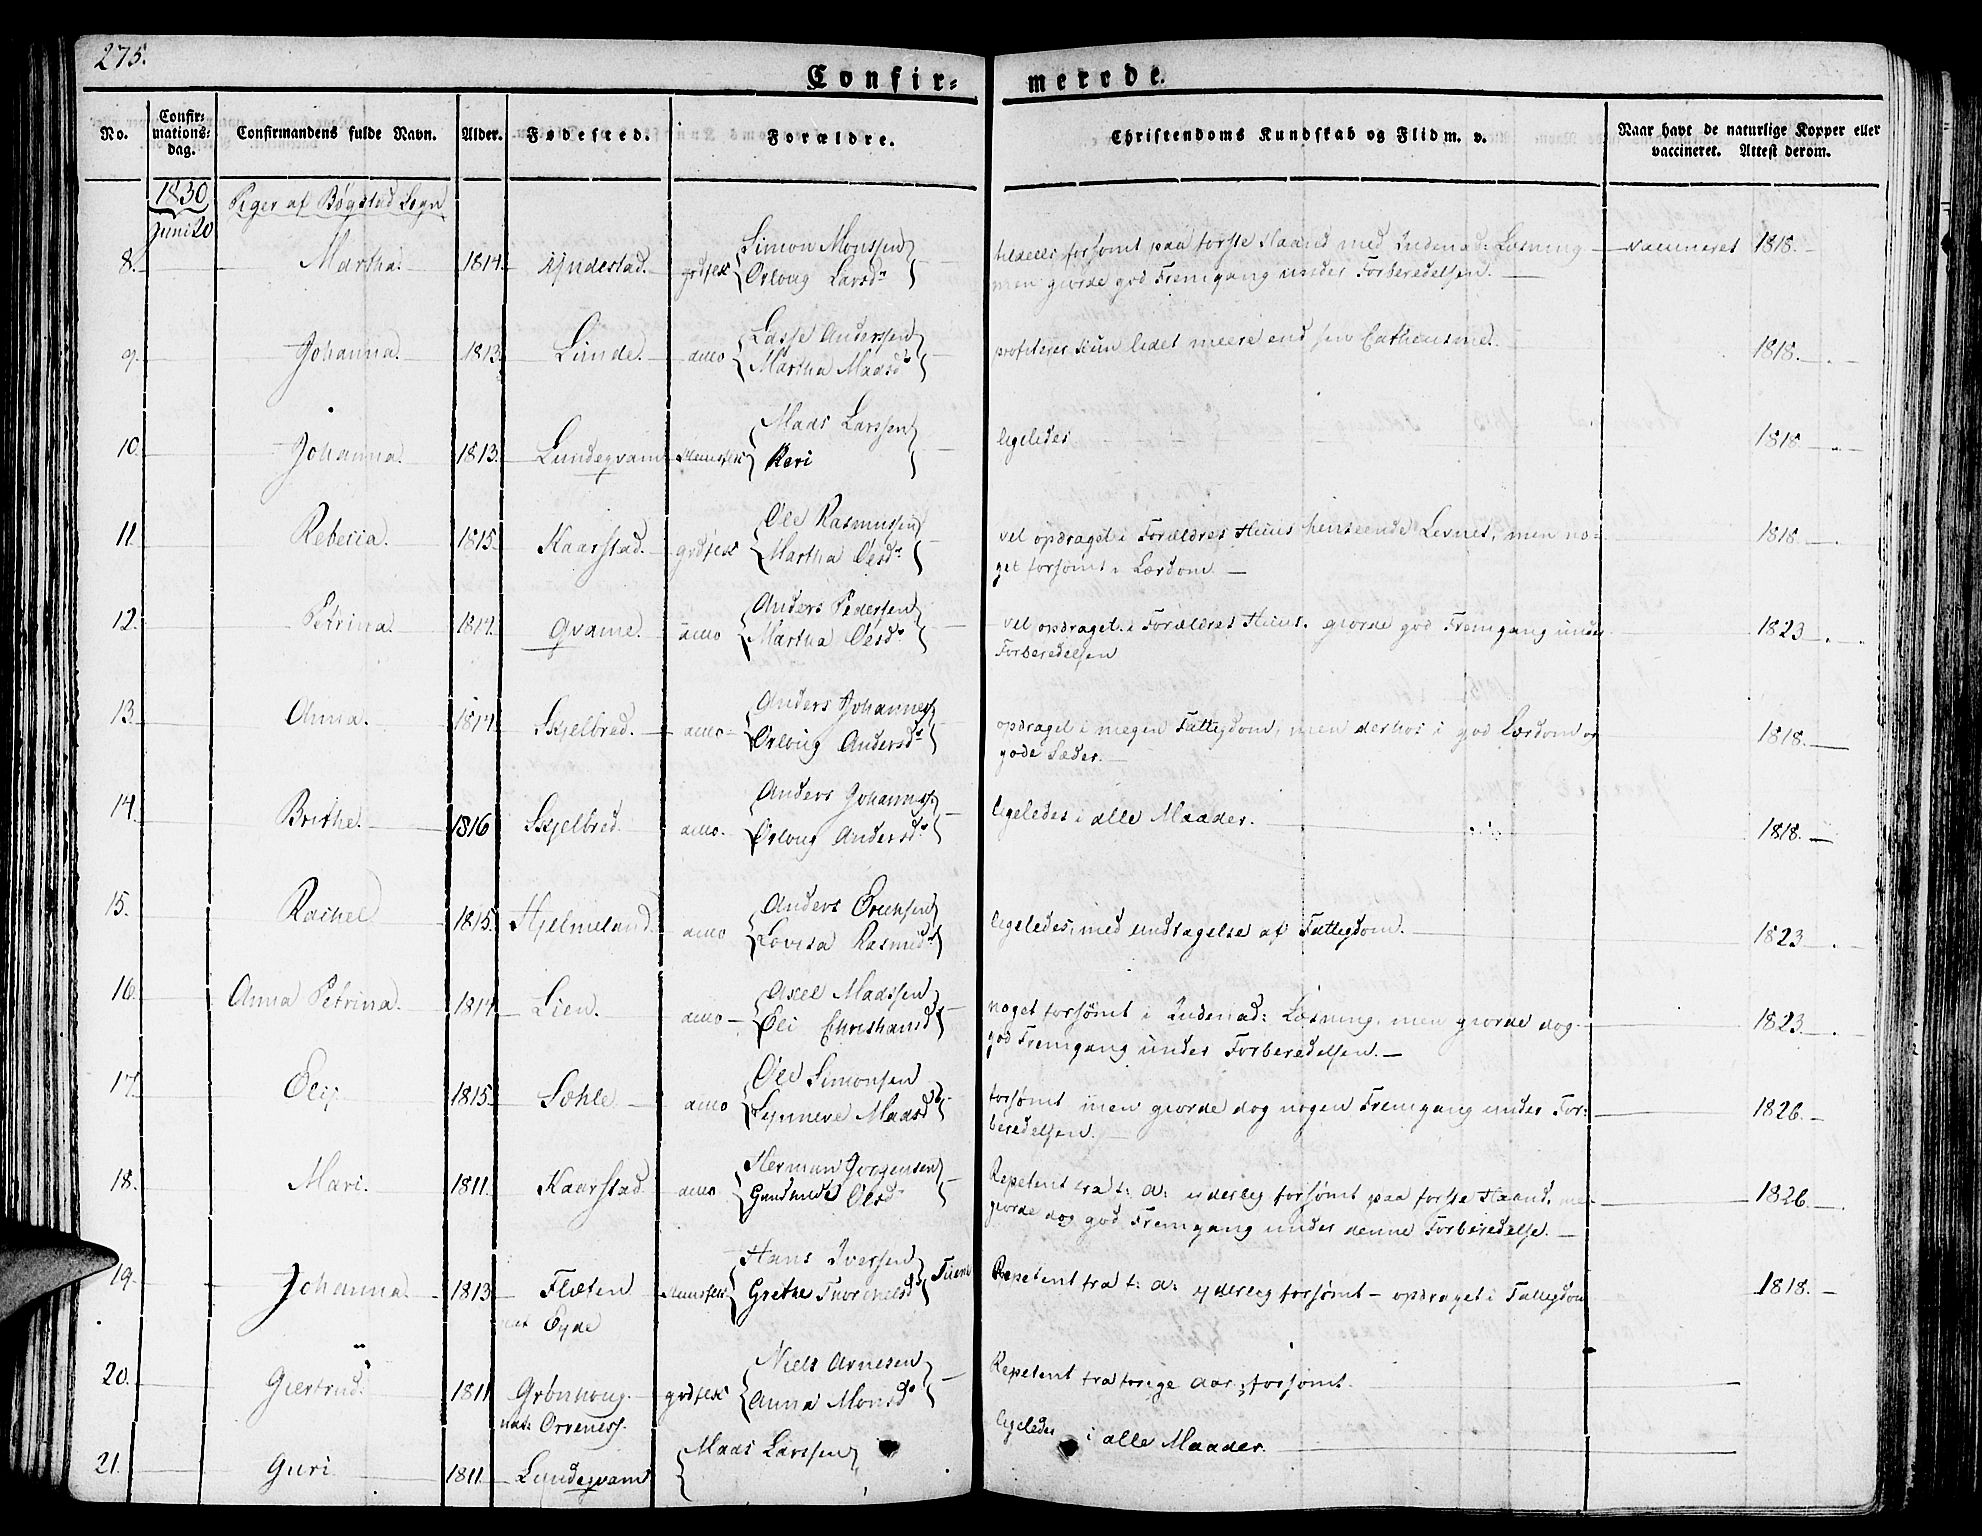 275.
Confir-
merede.
No.
Confir-
mations-
dag.
Confirmandens fulde Navn.
Alder.
Fødested.
Forældre.
Christendoms Kundskab og Flid m. v.
Naar havt de naturlige Kopper eller
vaccineret. Attest derom.
1830
Piger af Bøgstad Sogn
Juni 20
8. Martha. 1814. Kyndestad. grdflk Simon Monssen
Orloug Larsdr
tildeels forsömt paa forste Haand med Indenad: Læsning
men giorde god Fremgang under Forberedelsen.
vaccineret 1818.
9. Johanna. 1813. Lunde. dito Lasse Anderssen
Martha Madsdr
profiterer kun lidet meere end sin Cathecisme. 1818.
10. Johanna. 1813. Lundeqvam Huusflk Mads Larssen
Kari
ligeledes 1818.
11 Rebecca. 1815. Kaarstad. grdflk Ole Rasmussen
Martha Olsdr
vel opdraget i Forældres Huus henseende Levnet, men no-
get forsömt i Lærdom 1818.
12. Petrina. 1814. Qvame. dito Anders Pedersen
Martha Olsdr
vel opdraget i Forældres Huus. giorde god Fremgang under
Forberedelsen 1823.
13. Anna. 1814. Skjelbred. dito Anders Johannes
Orloug Andersdr
opdraget i megen Fattigdom, men derhos i god Lærdom og
gode Sæder. 1818.
14. Brithe. 1816 Skjelbred. dito. Anders Johannes
Orloug Andersdr
ligeledes i alle Maader. 1818.
15. Rachel 1815. Hjelmeland. dito Anders
Lovisa Rasmusd
ligeledes, med undtagelse af Fattigdom. 1823
16. Anna Petrina. 1814. Lien. dito Axel Madssen
Eli Christiansd
noget forsömt i Indenad: Læsning, men giorde dog
god Fremgang under Forberedelsen. 1823.
17. Eli 1815. Sæhle dito Ole Simonsen
Synneve Madsd
forsömt men giorde dog nogen Fremgang under For-
beredelsen. 1826.
18. Mari. 1811. Kaarstad dito Herman Jørgensen
Olsd
Repetent fra f: A: yderlig forsömt paa forste Haand,
giorde dog god Fremgang under denne Forberedelse. 1826.
19. Johanna. 1813. Flæten
Eyde
Huusflk Hans Iversen
Grethe
Repetent fra f: A: yderlig forsömt - opdraget i Fattigdom 1818.
20. Giertrud. 1811. Grønhoug.
nat: Orrenes.
grdflk Niels Arnesen
Anna Monsdr
Repetent fra forrige Aar, forsömt.
21. Guri 1811. Lundeqvam Mads Larssen
ligeledes i alle Maader.